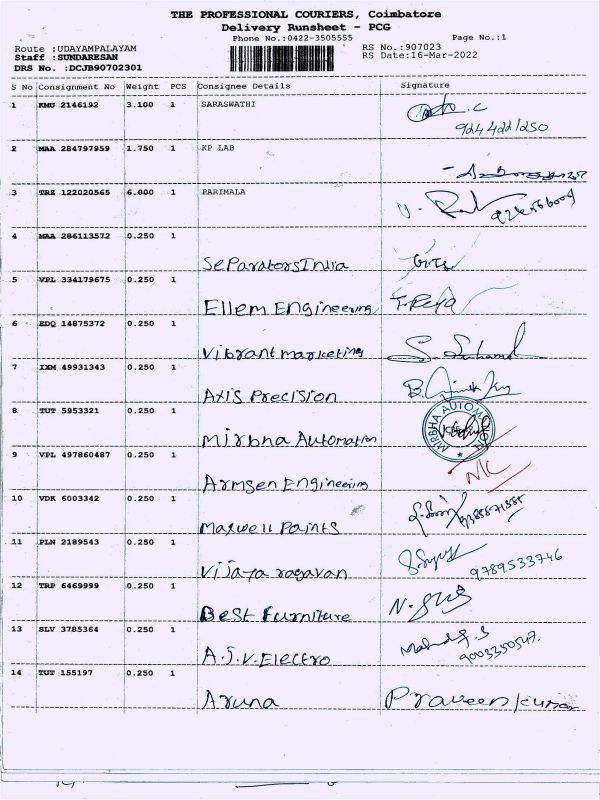 THE PROFESSIONAL COURIERS, Coimbatore
Delivery Runsheet - PCG
Phone No.:0422-3505555 Page No.:1
Route :UDAYAMPALAYAM RS No.:907023
Staff :SUNDARESAN RS Date:16-Mar-2022
DRS No. :DCJB90702301
S No Consignment No Weight PCS Consignee Details Signature
1 KMU 2146192 3.100 1 SARASWATHI
2 MAA 284797959 1.750 1 KP LAB
3 TRZ 122020565 6.000 1 PARIMALA
4 MAA 286113572 0.250 1
Separators India
5 VPL 334179675 0.250 1
Ellem Engineering T. Priya
6 EDQ 14875372 0.250 1
Vibrant marketing
7 IXM 49931343 0.250 1
Axis Precision
8 TUT 5953321 0.250 1
Mirbha Automation MIRBHA AUTOMATION
9 VPL 497860487 0.250 1
Armsen Engineering N/C
10 VDK 6003342 0.250 1
Maxwell Paints
11 PLN 2189543 0.250 1
Vijaya ragavan 9789533746
12 TRP 6469999 0.250 1
Best Furniture
13 SLV 3785364 0.250 1
A.J.V. Electro 9003350547.
14 TUT 155197 0.250 1
Aruna Praveen kumar